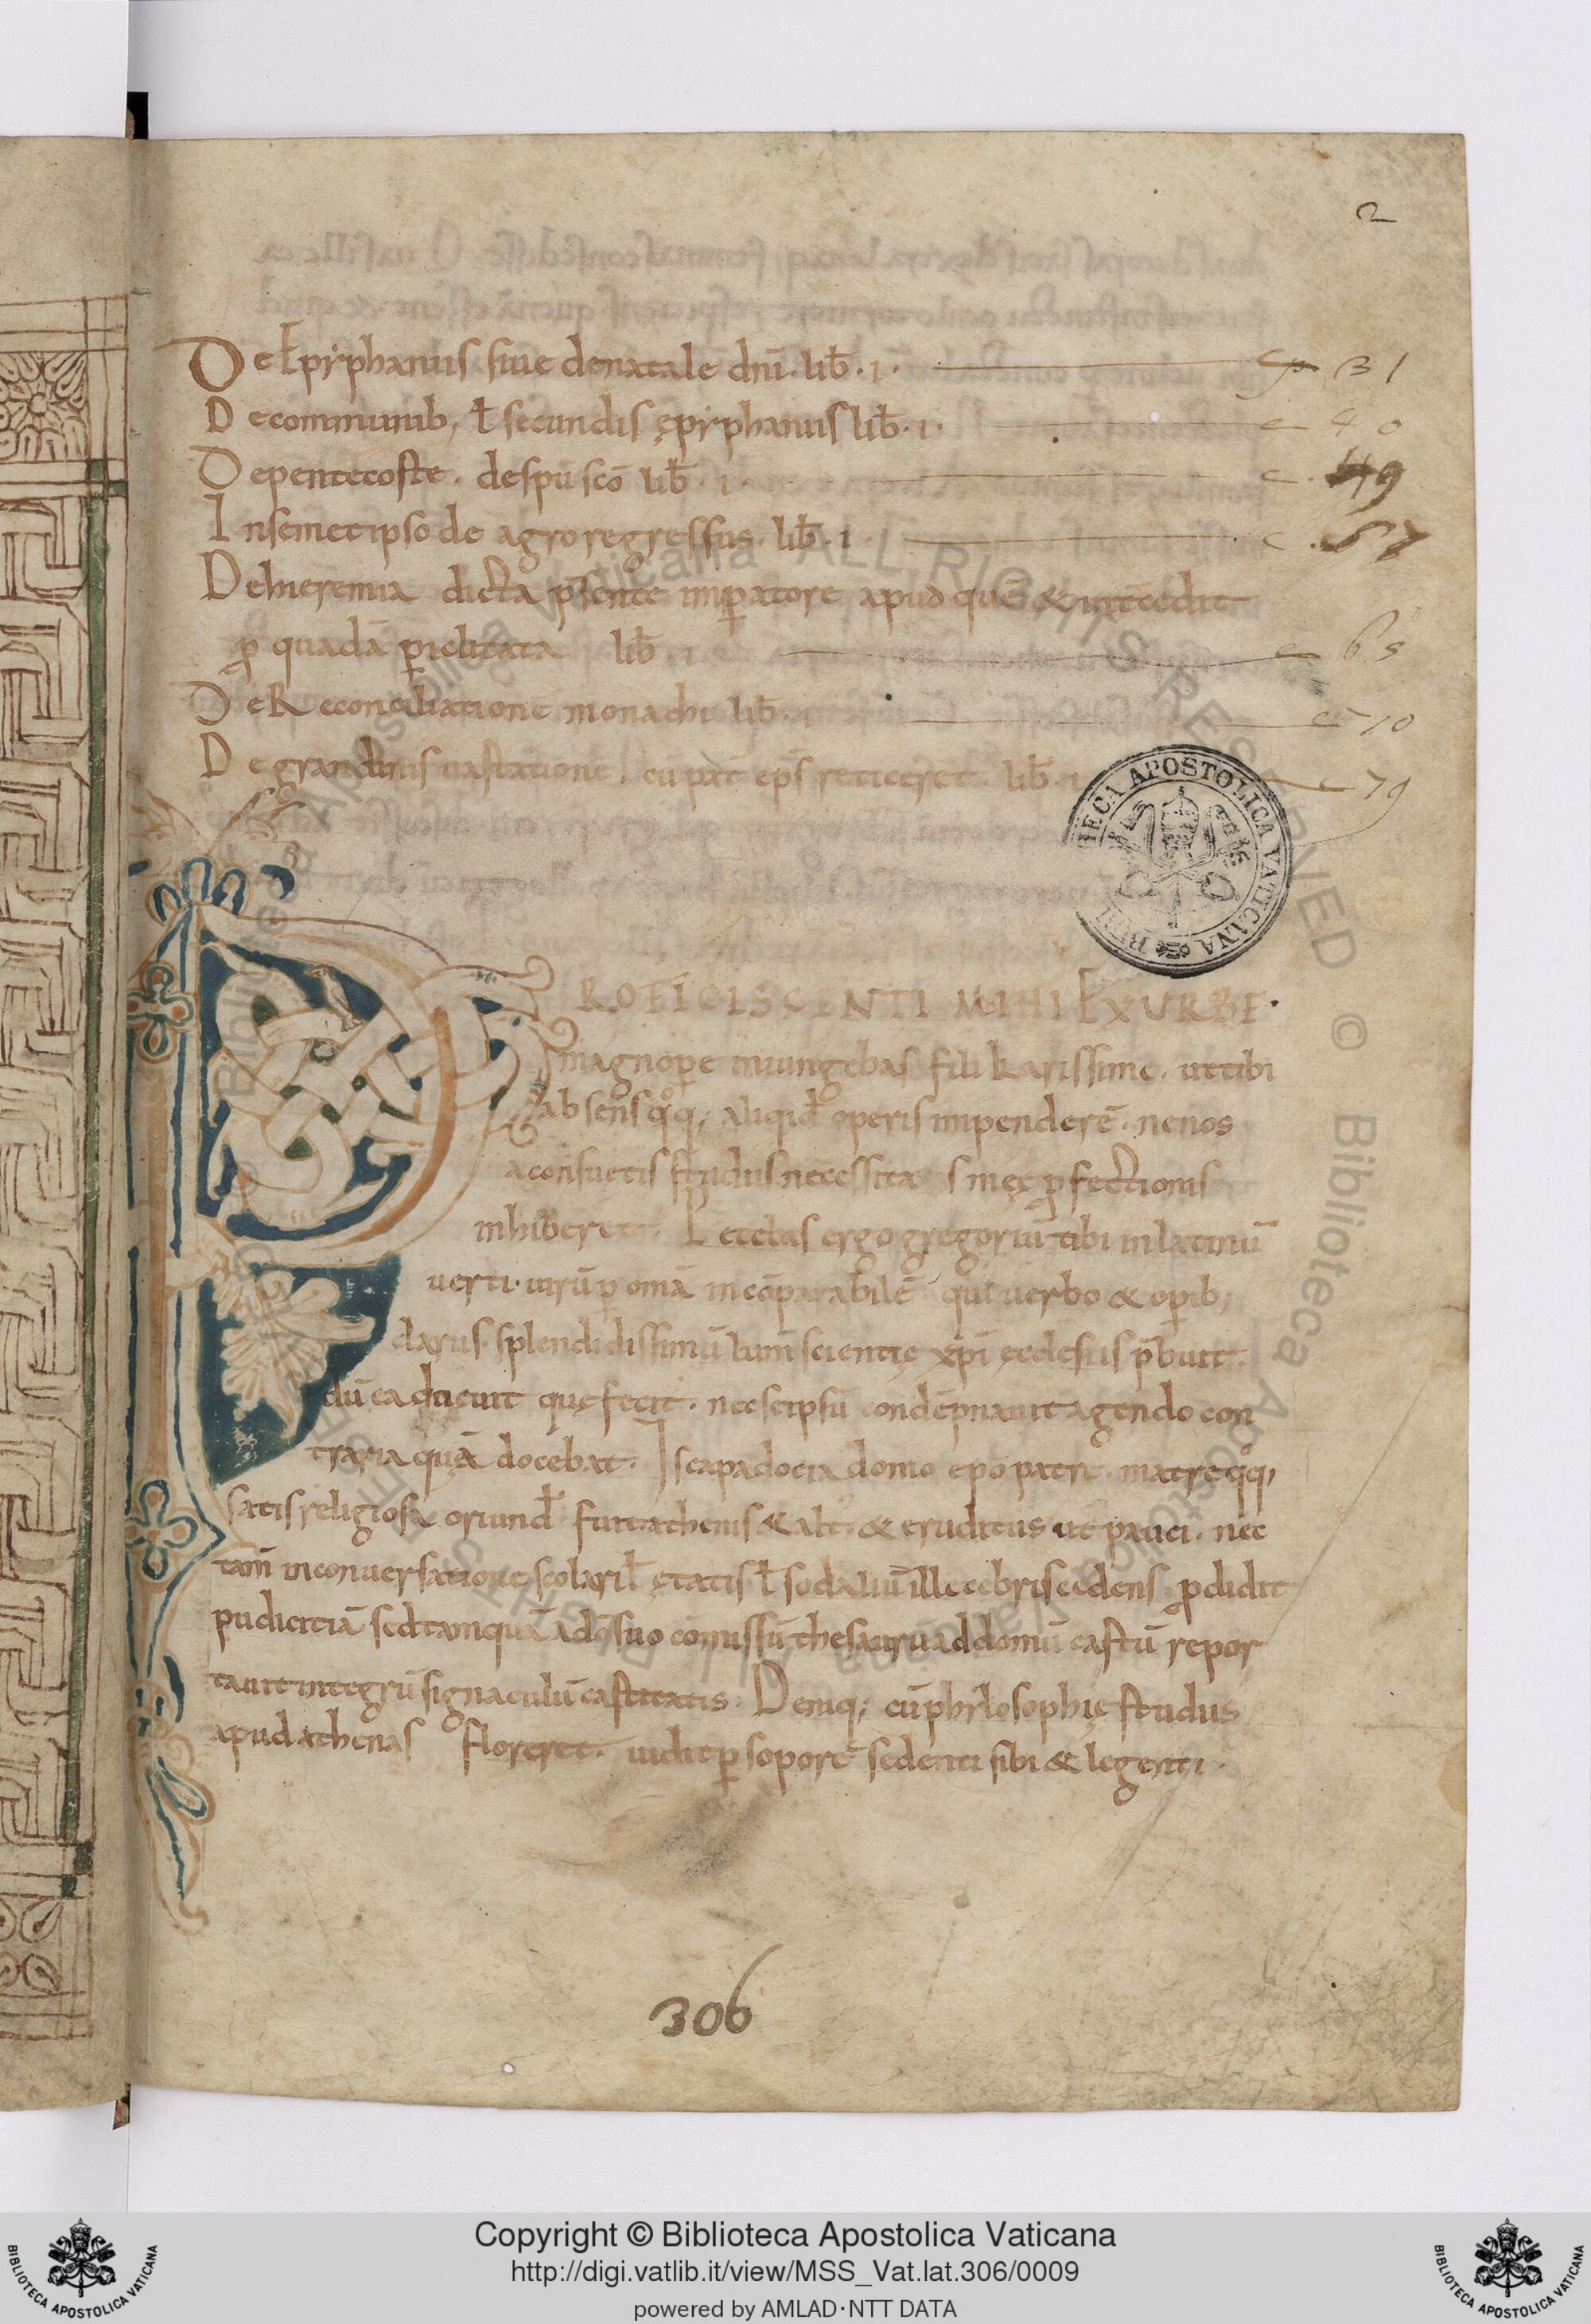 2
De Epyphaniis siue denatale dnī. lib̄. i. c 31
Decommunib; ł secundis ępyphaniis lib̄. i. c 40
Depentecoste. despū scō lib̄. i. c. 49
Insemetipso de agro regressus. lib̄. i c. 57
Dehieremia dicta p̄sente imꝑatore apud quē & intcedit
ꝓ quadā ꝑiclitata lib̄. i c 65
De Reconciliatione monachi lib̄. i c 70
De grandinis uastatione. cū pat̄ ep̄s reticeret. lib̄. i c 79
BIBLIOTHECA APOSTOLICA VATICANA
PROFICISCENTI MIHI EX URBE.
magnoꝑe iniungebas fili karissime. uttibi
absens qͦq; aliqid operis impenderē. nenos
aconsuetis studiis necessitas meę ꝓfectionis
inhiberet. Petebas ergo gregoriū tibi inlatinū
uerti. uirū ꝑ omā incōparabilē qui uerbo & oꝑib;
clarus. splendidissimū lum̄ scientię xp̄i ęcclesiis p̄buit.
dū ea docuit quę fecit. necseipsū condēpnauit agendo con
traria quā docebat. Is capadocia domo. epō patre. matre qͦq;
satis religiosa oriund' fuit athenis & alt' & eruditus ut pauci. nec
tam̄ inconuersatione scolari ł ętatis ł sodaliū illecebris cedens ꝓdidit
pudicitiā sedtamquā adō suo cōmissū thesaurū ad domū castū repor
tauit integrū signaculū castitatis. Deniq; cū phylosophię studiis
apud athenas floreret. uidit ꝑ soporē sedenti sibi & legenti
306
Copyright © Biblioteca Apostolica Vaticana
http://digi.vatlib.it/view/MSS_Vat.lat.306/0009
powered by AMLAD·NTT DATA
BIBLIOTECA APOSTOLICA VATICANA
BIBLIOTECA APOSTOLICA VATICANA